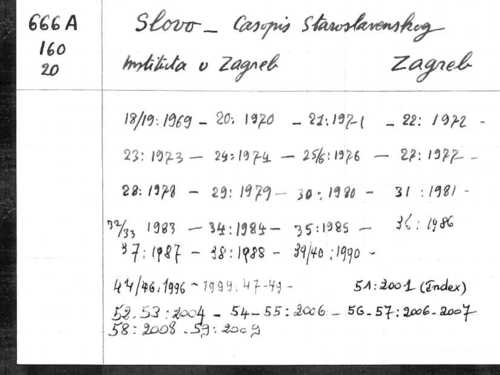 666A
160
20
Slovo - Casopis Staroslavenskog
Instituta u Zagreb Zagreb
18/19:1969 - 20:1970 - 21:1971 - 22:1972 -
23:1973 - 24:1974 - 25/6:1976 - 27:1977 -
28:1978 - 29:1979 - 30:1980 - 31:1981 -
32/33 1983 - 34:1984 - 35:1985 - 36:1986
37:1987 - 38:1988 - 39/40:1990 -
44/46:1996 - 1999:47-49 - 51:2001 (Index)
52-53:2004 - 54-55:2006 - 56-57:2006-2007
58:2008 - 59:2009